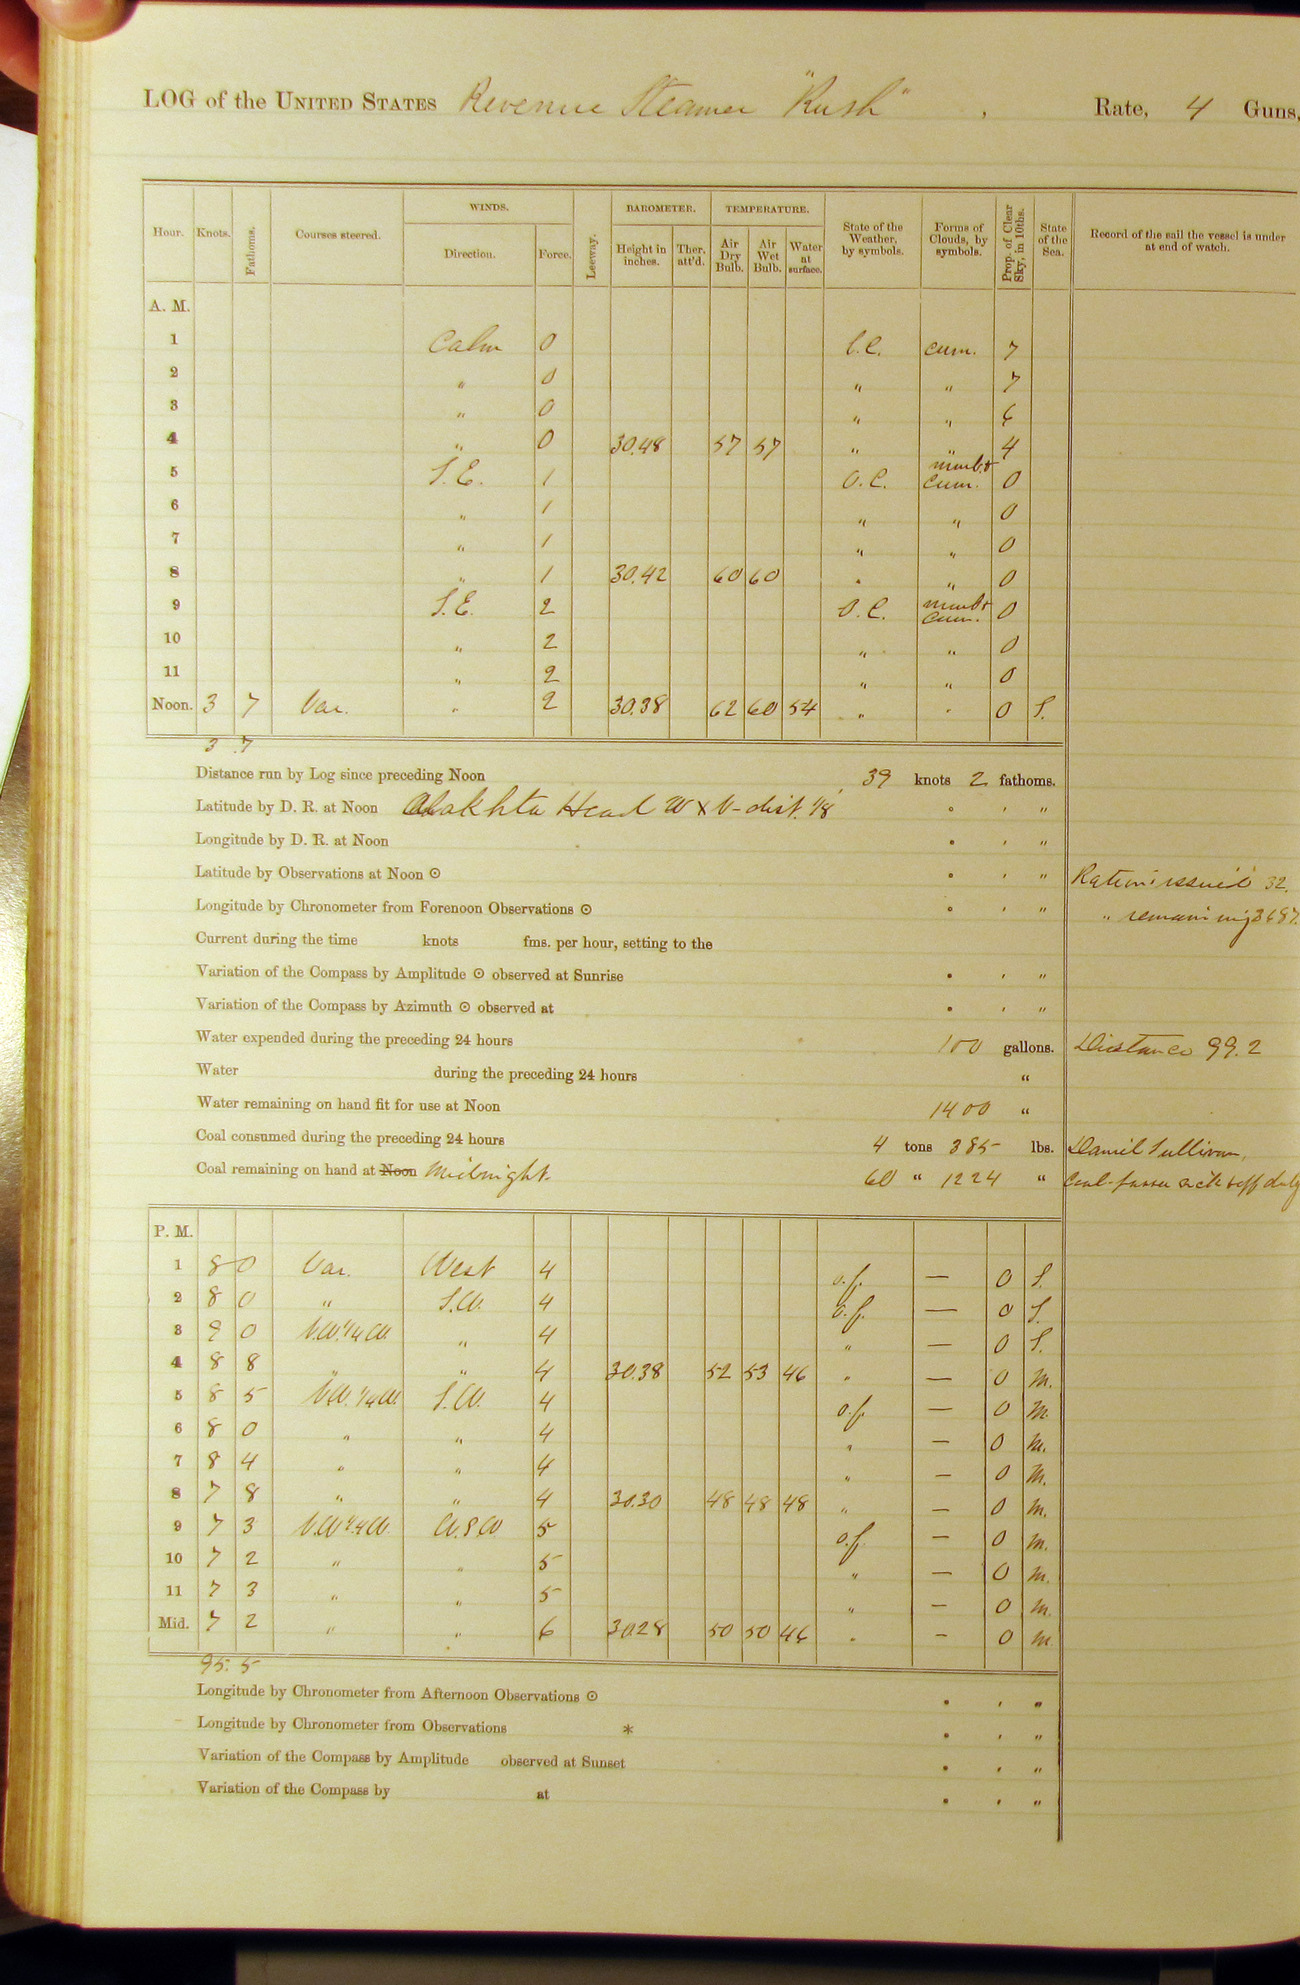 LOG of the UNITED STATES Revenue Steamer "Rush", Rate, 4 Guns,
Hour. Knots. Fathoms. Courses steered. WINDS. Direction. Force. Leeway. BAROMETER. Height in inches. Ther. att'd. TEMPERATURE. Air Dry Bulb. Air Wet Bulb. Water at surface. State of the Weather, by symbols. Forms of Clouds, by symbols. Prop. of Clear Sky, in 10ths. State of the Sea. Record of the sail the vessel is under at end of watch.
A. M.
1 Calm 0 b.c. cum. 7
2 " 0 " " 7
3 " 0 " " 6
4 " 0 30.48 57 57 " " 4
5 S.E. 1 O.C. nimb & cum. 0
6 " 1 " " 0
7 " 1 " " 0
8 " 1 30.42 60 60 " " 0
9 S.E. 2 O.C. nimb & cum. 0
10 " 2 " " 0
11 " 2 " " 0
Noon. 3 7 Var. " 2 30.38 62 60 54 " " 0 S.
3 .7
Distance run by Log since preceding Noon 39 knots 2 fathoms.
Latitude by D. R. at Noon Head W x N - dist. 1/8 ° ' "
Longitude by D. R. at Noon ° ' "
Latitude by Observations at Noon ☉ ° ' " Rations issued 32.
Longitude by Chronometer from Forenoon Observations ☉ ° ' " " remaining 3687.
Current during the time knots fms. per hour, setting to the
Variation of the Compass by Amplitude ☉ observed at Sunrise ° ' "
Variation of the Compass by Azimuth ☉ observed at ° ' "
Water expended during the preceding 24 hours 100 gallons. Distance 99.2
Water during the preceding 24 hours "
Water remaining on hand fit for use at Noon 1400 "
Coal consumed during the preceding 24 hours 4 tons 385 lbs. Daniel Sullivan,
Coal remaining on hand at Noon Midnight. 60 " 1224 " Coal-passer sick & off duty
P. M.
1 8 0 Var. West 4 o.f. — 0 S.
2 8 0 " S.W. 4 o.f. — 0 S.
3 9 0 N.W. 1/4 W. " 4 " — 0 S.
4 8 8 " " 4 30.38 52 53 46 " — 0 M.
5 8 5 N.W. 1/4 W. S.W. 4 o.f. — 0 M.
6 8 0 " " 4 " — 0 M.
7 8 4 " " 4 " — 0 M.
8 7 8 " " 4 30.30 48 48 48 " — 0 M.
9 7 3 N.W. 1/4 W. W.S.W 5 o.f. — 0 M.
10 7 2 " " 5 " — 0 M.
11 7 3 " " 5 " — 0 M.
Mid. 7 2 " " 6 30.28 50 50 46 " — 0 M.
95. 5
Longitude by Chronometer from Afternoon Observations ☉ ° ' "
Longitude by Chronometer from Observations * ° ' "
Variation of the Compass by Amplitude observed at Sunset ° ' "
Variation of the Compass by at ° ' "